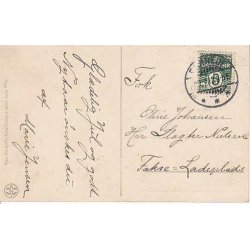 Glædelig Jul og godt
Nytaar ønskes du
af
Marie Jensen
Frk
Eline Johansen
Hr Slagter Nielsen
Fakse-Ladeplads
5